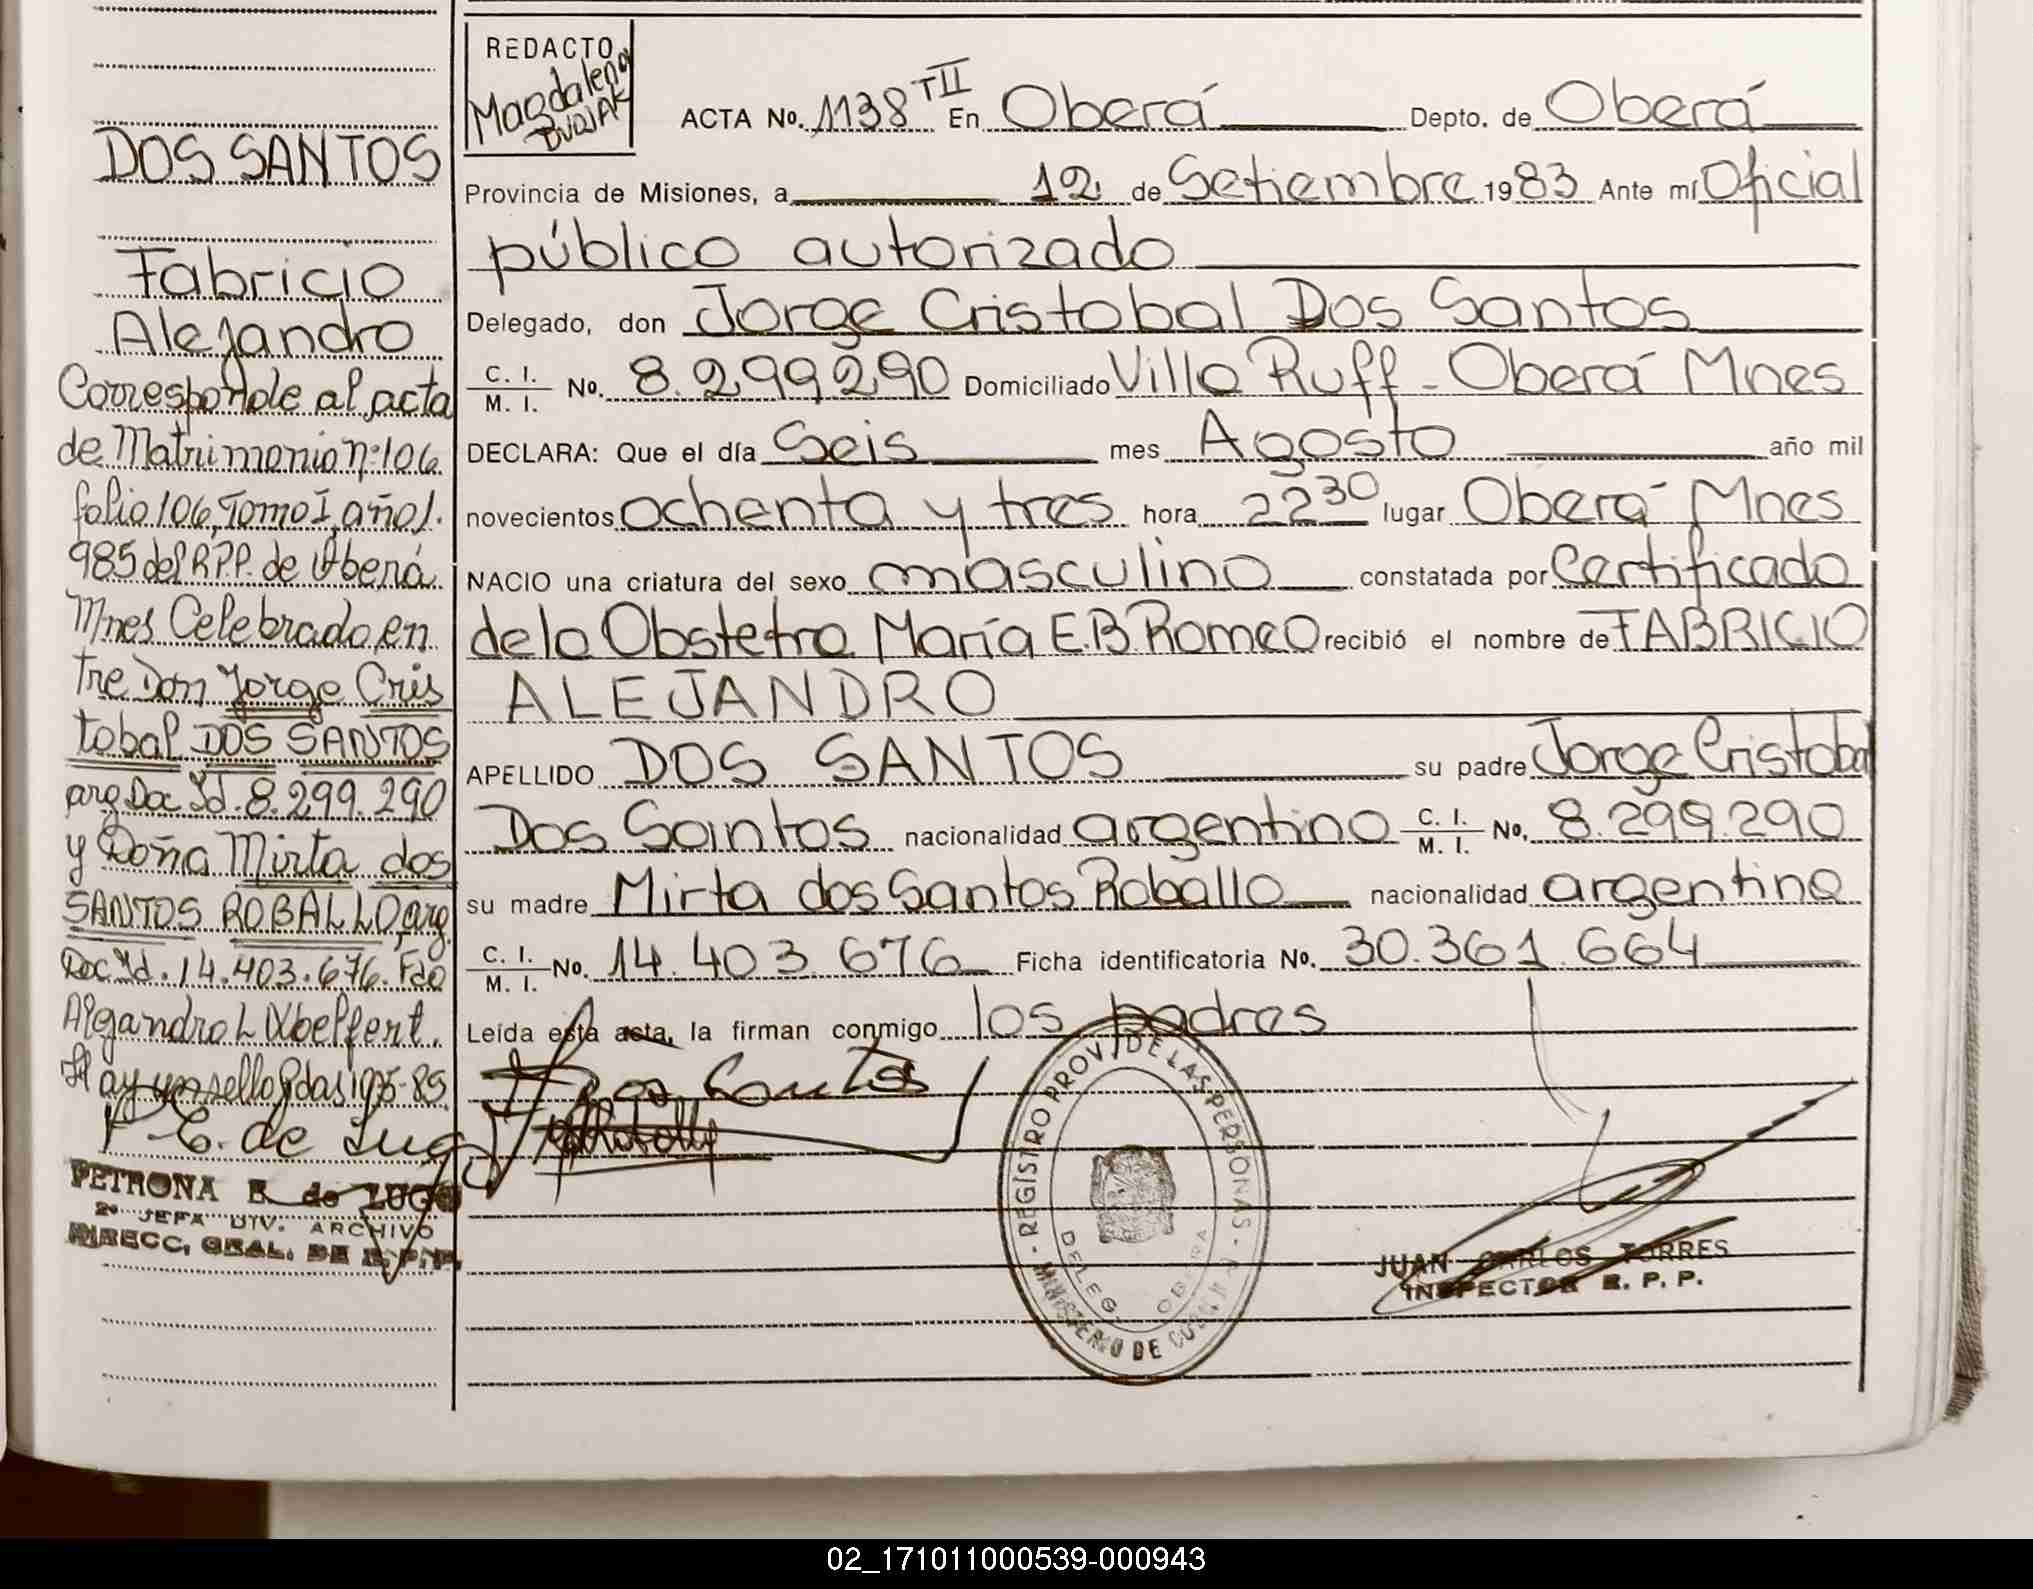 DOS SANTOS
Fabricio
Alejandro
Corresponde al acta
de Matrimonio nº 106
folio 106, Tomo I, año 1.
985 del R.P.P. de Oberá.
Mnes Celebrado en
tre Don Jorge Cris
tobal DOS SANTOS
arg Doc Id. 8.299.290
y Doña Mirta dos
SANTOS ROBALLO, arg.
Doc Id. 14.403.676. Fdo
Alejandro L.
Hay un sello
P. E. de Lugo
PETRONA E. de LUGO
2º JEFA DIV. ARCHIVO
DIRECC. GRAL. DE R.P.P.
REDACTO
Magdalena
ACTA No. 1138 TII En Oberá Depto. de Oberá
Provincia de Misiones, a 12 de Setiembre 1983 Ante mí Oficial
público autorizado
Delegado, don Jorge Cristobal Dos Santos
C. I. M. I. No. 8.299.290 Domiciliado Villa Ruff - Oberá Mnes
DECLARA: Que el día Seis mes Agosto año mil
novecientos ochenta y tres hora 22 30 lugar Oberá Mnes
NACIO una criatura del sexo masculino constatada por Certificado
de la Obstetra María E.B Romeo recibió el nombre de FABRICIO
ALEJANDRO
APELLIDO DOS SANTOS su padre Jorge Cristobal
Dos Santos nacionalidad argentino C. I. M. I. No. 8.299.290
su madre Mirta dos Santos Roballo nacionalidad argentina
C. I. M. I. No. 14.403.676 Ficha identificatoria No. 30.361.664
Leída esta acta, la firman conmigo los padres
Dos Santos
REGISTRO PROV. DE LAS PERSONAS
MINISTERIO DE
DELEG. OBERA
JUAN CARLOS TORRES
INSPECTOR R. P. P.
02_171011000539-000943